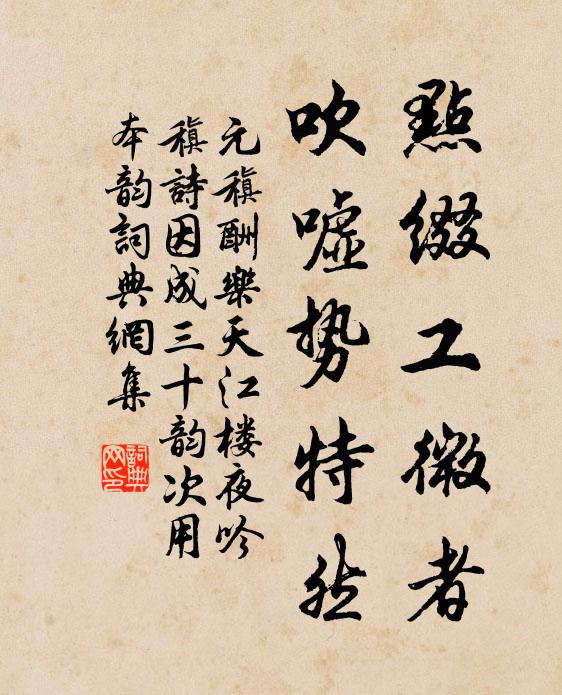 點綴工微者
吹噓势特然
元稹酬樂天江楼夜吟
稹詩因成三十韵次用
本韵詞典網集
詞典
网印